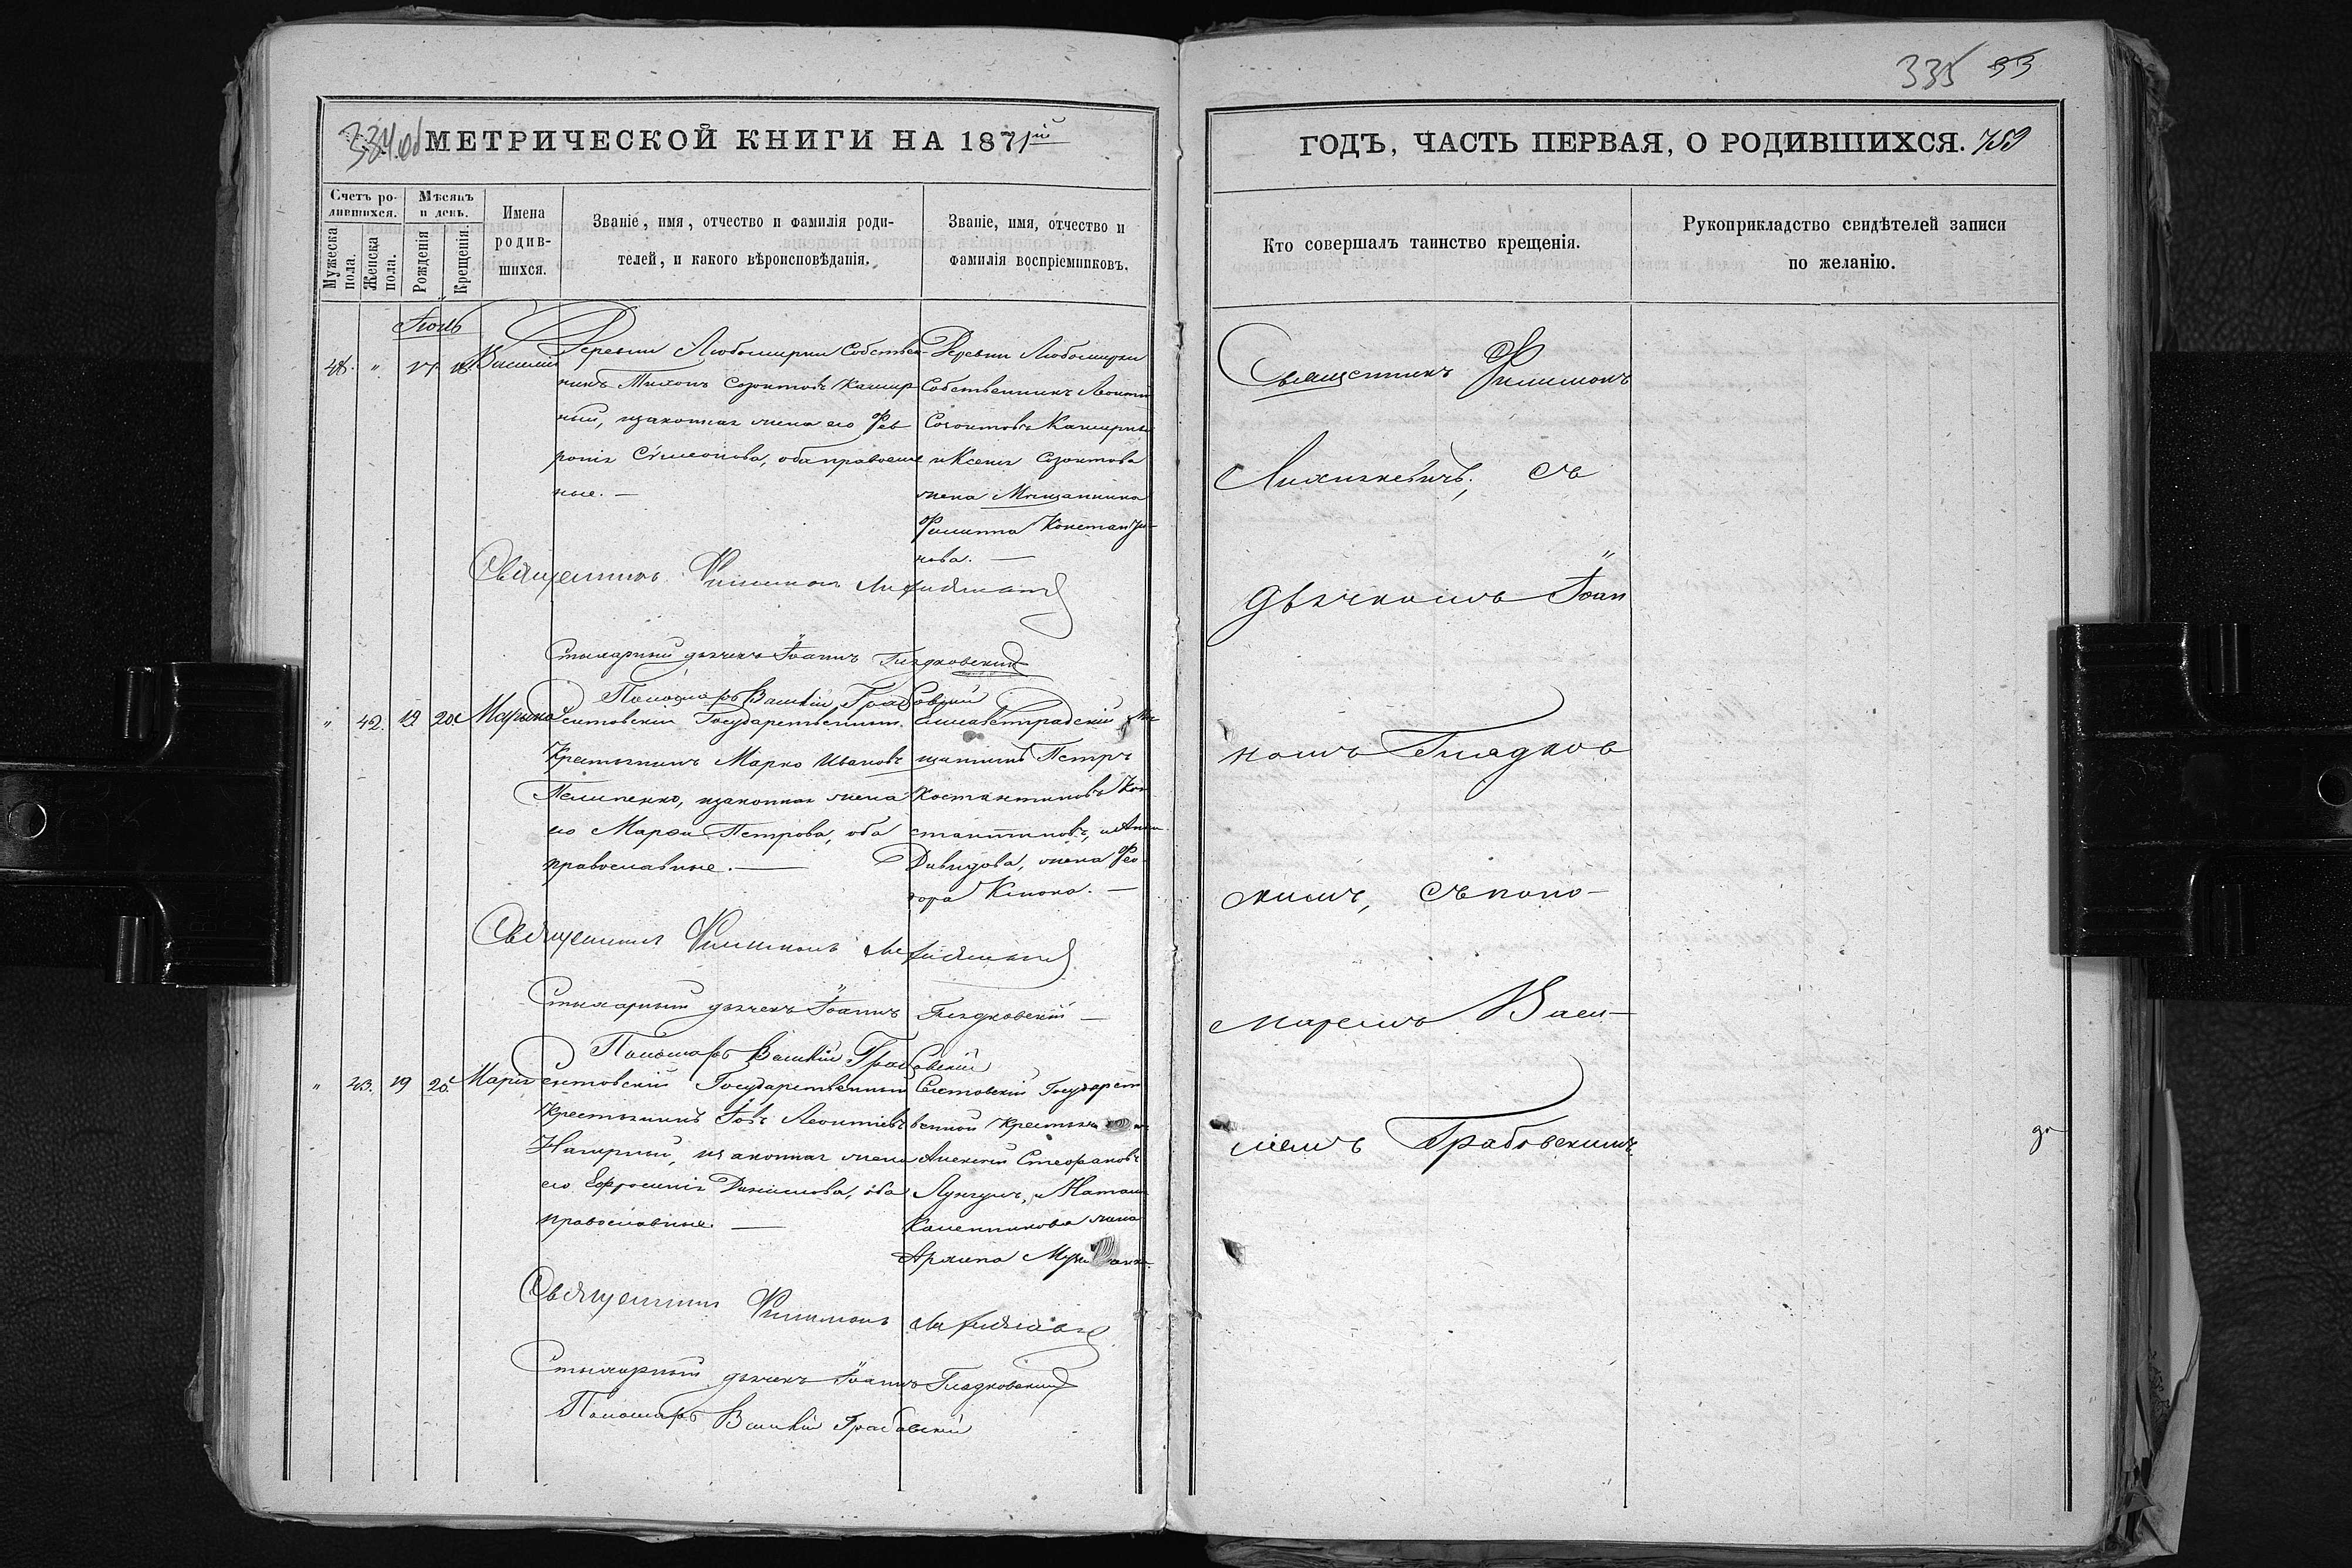 334 об
МЕТРИЧЕСКОЙ КНИГИ НА 1871й
Счетъ ро-
дившихся.
Мужеска
пола.
Женска
пола.
Мѣсяцъ
и день.
Рожденія
Крещенія.
Имена
родив-
шихся.
Званіе, имя, отчество и фамилія роди-
телей, и какого вѣроисповѣданія.
Званіе, имя, отчество и
фамилія воспріемниковъ.
48. " 17 18 Василій
Деревни Любомирки Собствен-
никъ Тихонъ Созонтовъ Кашир
ный, изаконная жена его Фев
ронія Сѵмеонова, оба православ
ные. —
Деревни Любомирки
Собственникъ Леонтій
Созонтовъ Каширный
и Ксенія Созонтова
жена Мѣщанина
Филиппа Константи-
нова. —
Священникъ Филимонъ
Стихарный дьячекъ Іоаннъ Гладковский
Пономарь Василій Грабовскій
" 42. 19 20 Марина
Сентовскій Государственный
Крестьянинъ Марко Ивановъ
Пелипенко, изаконная жена
его Марѳа Петрова, оба
православные. —
Елисаветградскій Мѣ
щанинъ Петръ
Костантиновъ Кон
стантиновъ, и Анна
Давидова, жена Ѳео
дора Клиона. —
Священникъ Филимонъ
Стихарный дьячекъ Іоаннъ Гладковскій —
Пономарь Василій Грабовскій
" 43. 19 20 Марія
Сентовскій Государственный
Крестьянинъ Іовъ Леонтіевъ
Нагирный, изаконная жена
его Ефросинія Даниилова, оба
православные. —
Сентовскій Государст
венной Крестьянинъ
Алексѣй Стефановъ
Лунгулъ, и Наталія
Каленникова жена
Архипа
Священникъ Филимонъ
Стихарный дьячекъ Іоаннъ Гладковский
Пономарь Василій Грабовскій
335 33
ГОДЪ, ЧАСТЬ ПЕРВАЯ, О РОДИВШИХСЯ. 759
Кто совершалъ таинство крещенія.
Рукоприкладство свидѣтелей записи
по желанію.
Священникъ Филимонъ
Лихнякевичъ, съ
дьячкомъ Іоан
номъ Гладков
скимъ, съ поно-
маремъ Васи-
ліемъ Грабовскимъ